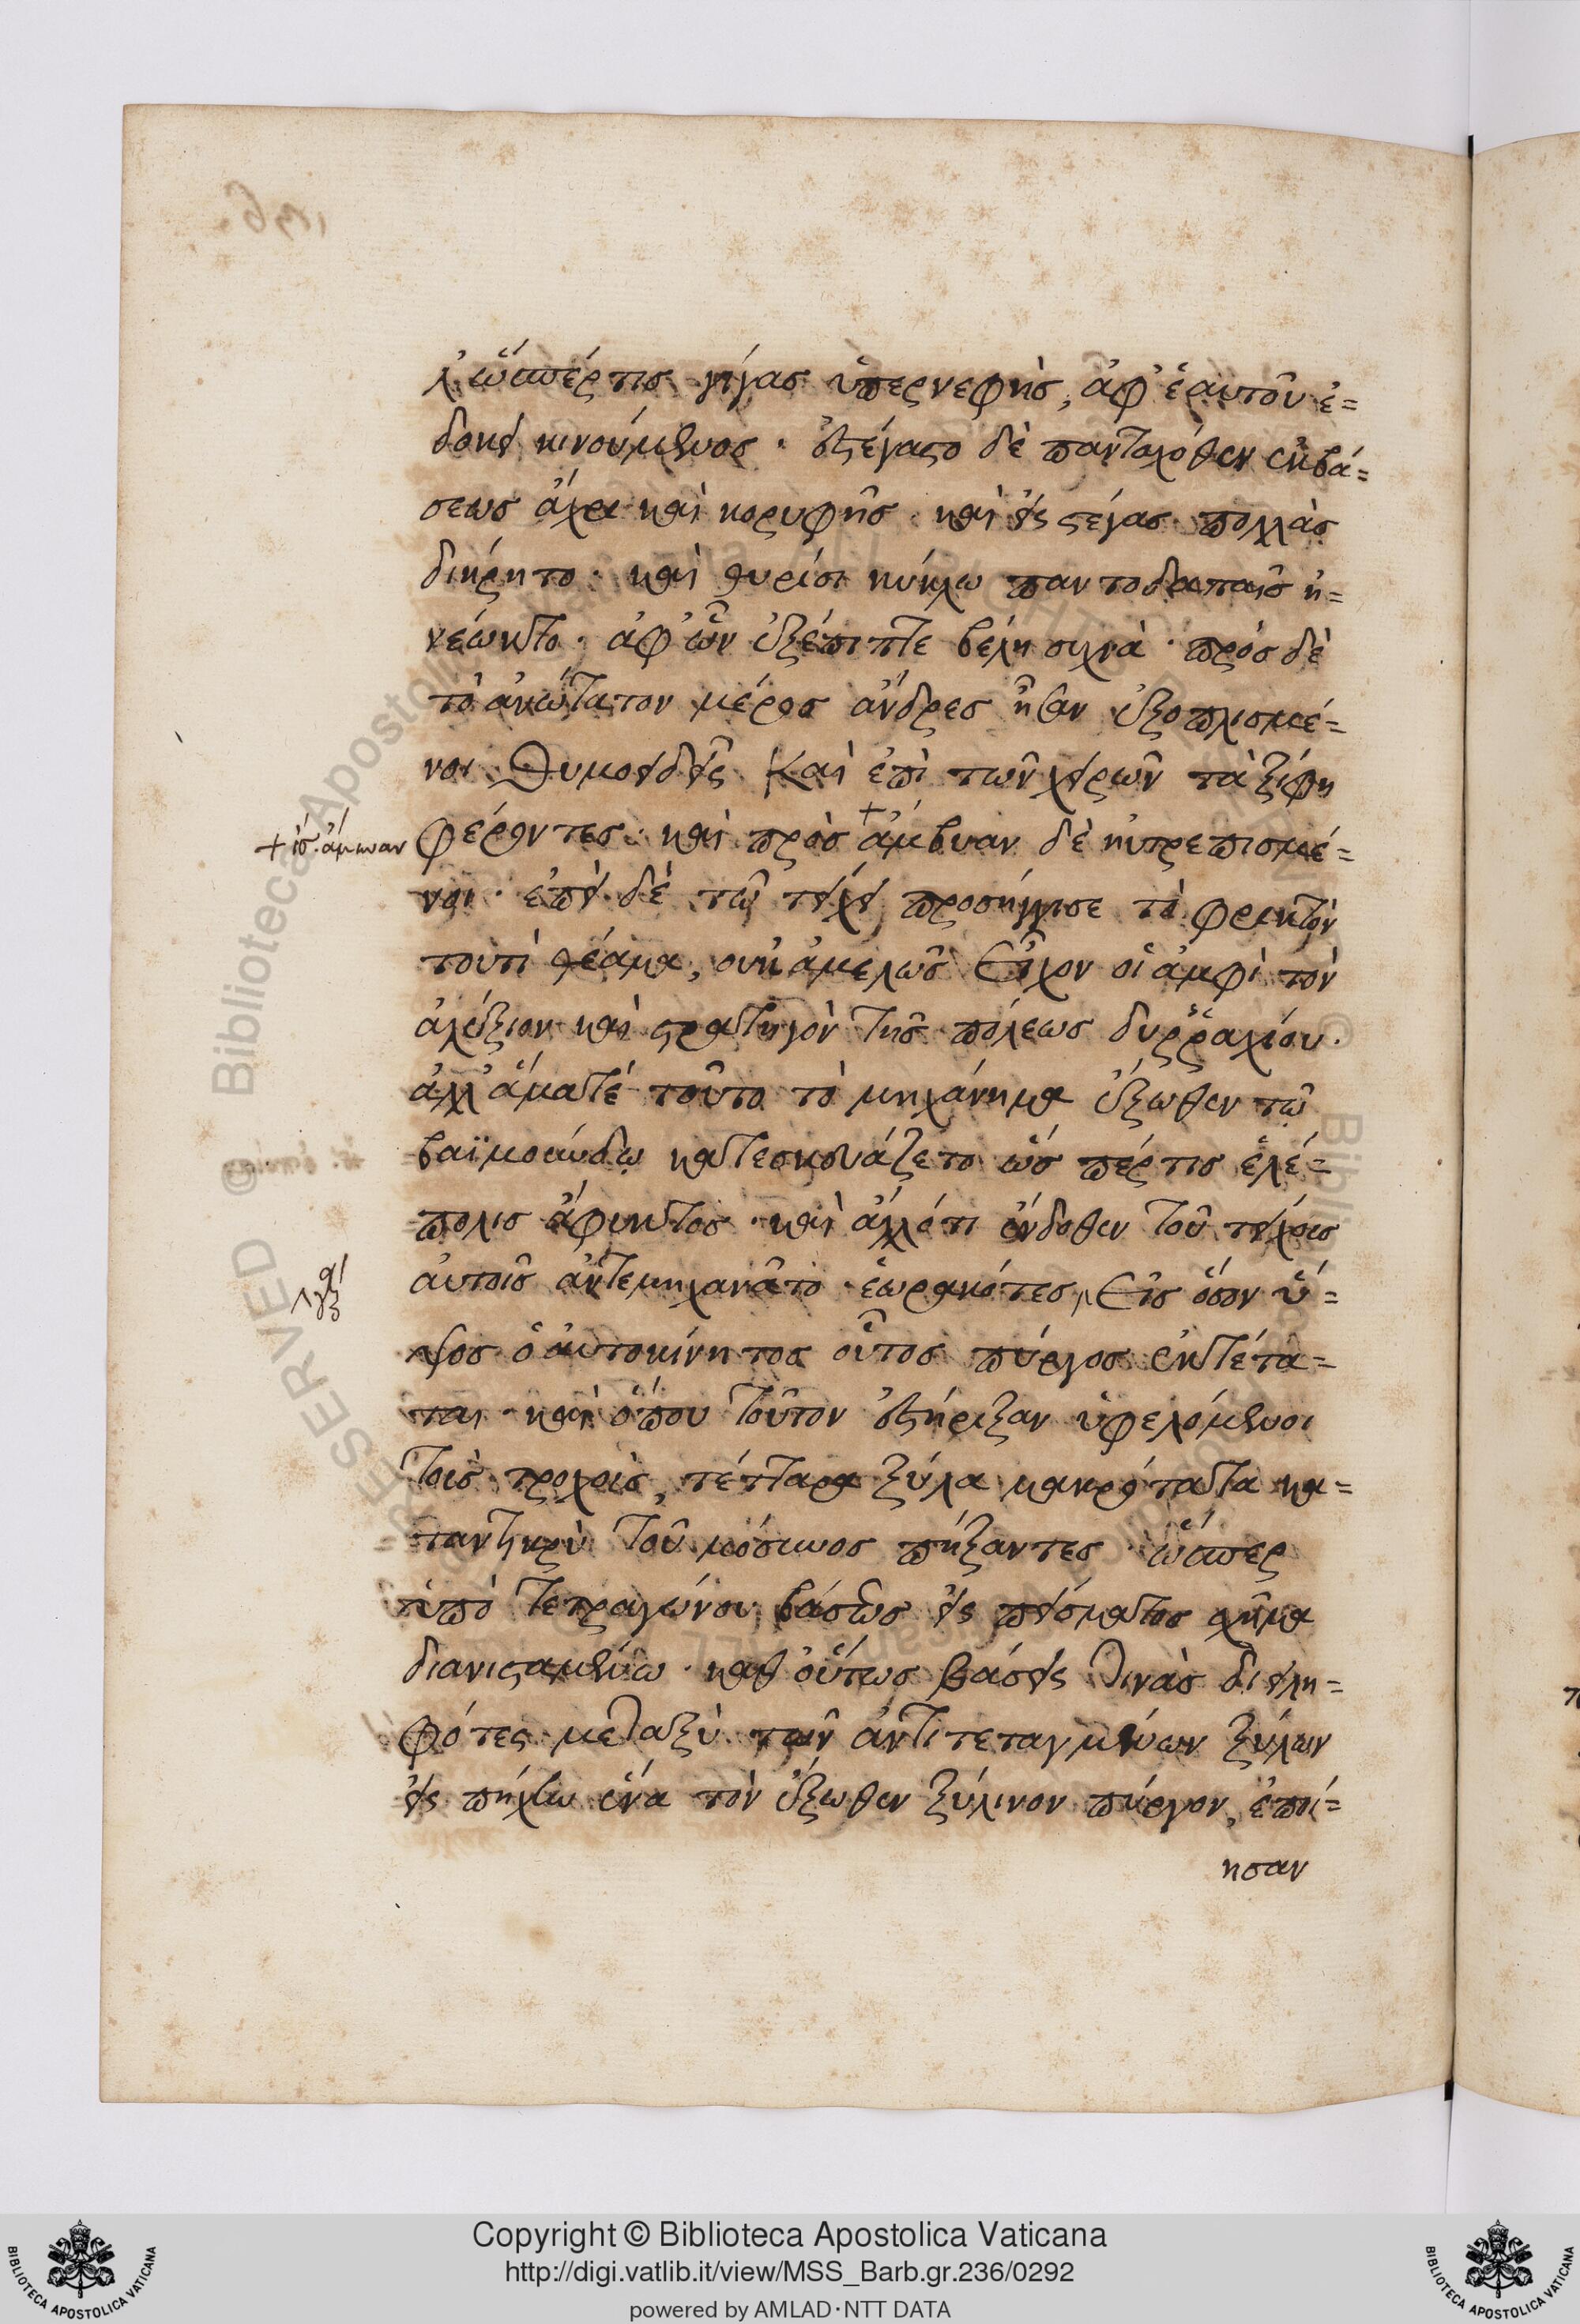 λ, ὥσπέρ τις γίγας ὑπερνεφὴς, ἀφ' ἑαυτοῦ ἐ=
δόκει κινούμενος. ἐστέγαστο δὲ πανταχόθεν ἐκ βά=
σεως ἄχρι καὶ κορυφῆς. καὶ εἰς στέγας πολλὰς
διῄρητο. καὶ θυρίσι κύκλω παντοδαπαῖς ἠ=
νέωκτο. ἀφ' ὧν ἐξέπιπτε βέλη συχνὰ. πρὸς δὲ
τὸ ἀνώτατον μέρος ἄνδρες ἦσαν ἐξοπλισμέ=
νοι θυμοειδεῖς καὶ ἐπὶ τῶν χειρῶν τὰ ξίφη
φέροντες. καὶ πρὸς + ἄμβυαν δὲ ηὐτρεπισμέ=
νοι. ἐπεὶ δὲ τῶ τείχει προσήγγισε τὸ φρικτὸν
τουτὶ θέαμα, οὐκ ἀμελῶς εἶχον οἱ ἀμφὶ τὸν
ἀλέξιον καὶ στρατηγὸν τῆς πόλεως δυῤῥαχίου.
ἀλλ' ἅμα τέ τοῦτο τὸ μηχάνημα ἔξωθεν τῶ
βαϊμούνδω κατεσκευάζετο ὥς πέρ τις ἑλέ=
πολις ἄφυκτος. καὶ ἀλλό τι ἔνδοθεν τοῦ τείχους
αὐτοῖς ἀντεμηχανᾶτο. ἑωρακότες, εἰς ὅσον ὕ=
ψος ὁ αὐτοκίνητος οὗτος πύργος ἐκτέτα=
ται. καὶ ὅπου τοῦτον ἐστήριξαν ὑφελόμενοι
τοὶς τροχοὶς, τέτταρα ξύλα μακρότατα κα=
ταντικρὺ τοῦ μόσυνος πήξαντες. ὥσπερ
ὑπὸ τετραγώνου βάσεως εἰς πείσματος σχῆμα
διανισταμένω. καθ' οὕτως βάσεις τινὰς διειλη=
φότες μεταξὺ τῶν ἀντιτεταγμένων ξύλων
εἰς πήχυν ἕνα τὸν ἔξωθεν ξύλινον πύργον, ἐποί=
ησαν
+ ἴσ. ἄμυναν
Copyright © Biblioteca Apostolica Vaticana
http://digi.vatlib.it/view/MSS_Barb.gr.236/0292
powered by AMLAD·NTT DATA